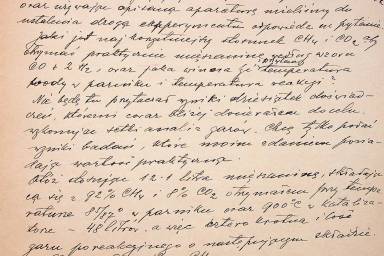 oraz używając opisaną aparaturę mieliśmy do
ustalenia drogą eksperymentu odpowiedź na pytanie.
Jaki jest naj korzystniejszy stosunek CH4 i CO2 aby
otrzymać praktycznie mieszaninę według wzoru
CO + 2 H2 oraz jaka winna być temperatura
wody w parniku i temperatura reakcji?
Nie będę tu przytaczał wyniki dziesiątek doświad-
czeń, któremi coraz bliżej do celu,
setki analiz gazów. Chcę tylko podać
wyniki badań, które moim zdaniem posia-
dają wartość praktyczną.
Otóż dozując 12.1 litra mieszaniny, składają-
cą się z 92% CH4 i 8% CO2 otrzymałem przy tempe-
raturze w parniku oraz 900°C w kataliza-
torze – 48 litrów, a więc cztero krotną ilość
gazu poreakcyjnego o następującym składzie